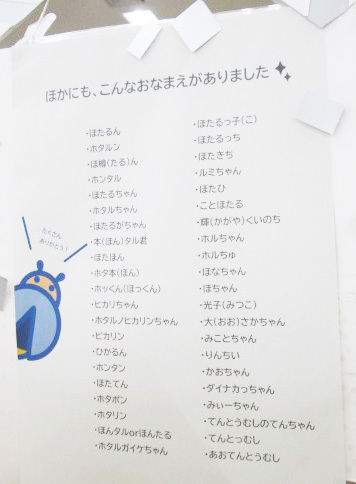 ほかにも、こんなおなまえがありました
・ほたるん
・ホタルン
・ほ樽(たる)ん
・ホンタル
・ほたるちゃん
・ホタルちゃん
・ほたるがちゃん
・本(ほん)タル君
・ほたほん
・ホタ本(ほん)
・ホッくん(ほっくん)
・ヒカリちゃん
・ホタルノヒカリンちゃん
・ピカリン
・ひかるん
・ホンタン
・ほたてん
・ホタポン
・ホタリン
・ほんタルorほんたる
・ホタルガイケちゃん
・ほたるっ子(こ)
・ほたるっち
・ほたきち
・ルミちゃん
・ほたひ
・ことほたる
・輝(かがや)くいのち
・ホルちゃん
・ホルちゅ
・ほなちゃん
・ほちゃん
・光子(みつこ)
・大(おお)さかちゃん
・みことちゃん
・りんちい
・かおちゃん
・ダイナカっちゃん
・みぃーちゃん
・てんとうむしのてんちゃん
・てんとっむし
・あおてんとうむし
たくさん
ありがとう!